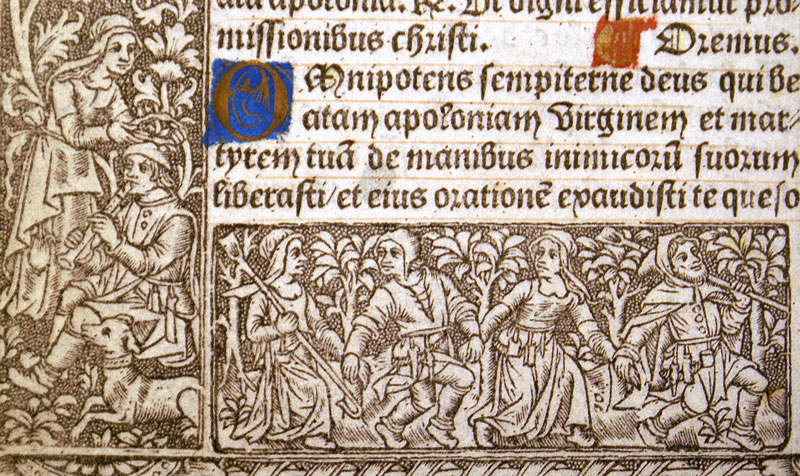 ata apolonia. R. Ut digni efficiamur pro-
missionibus christi. Oremus.
OMnipotens sempiterne deus qui be
atam apoloniam virginem et mar-
tyrem tuã de manibus inimicorũ suorum
liberasti/et eius orationẽ exaudisti te queso